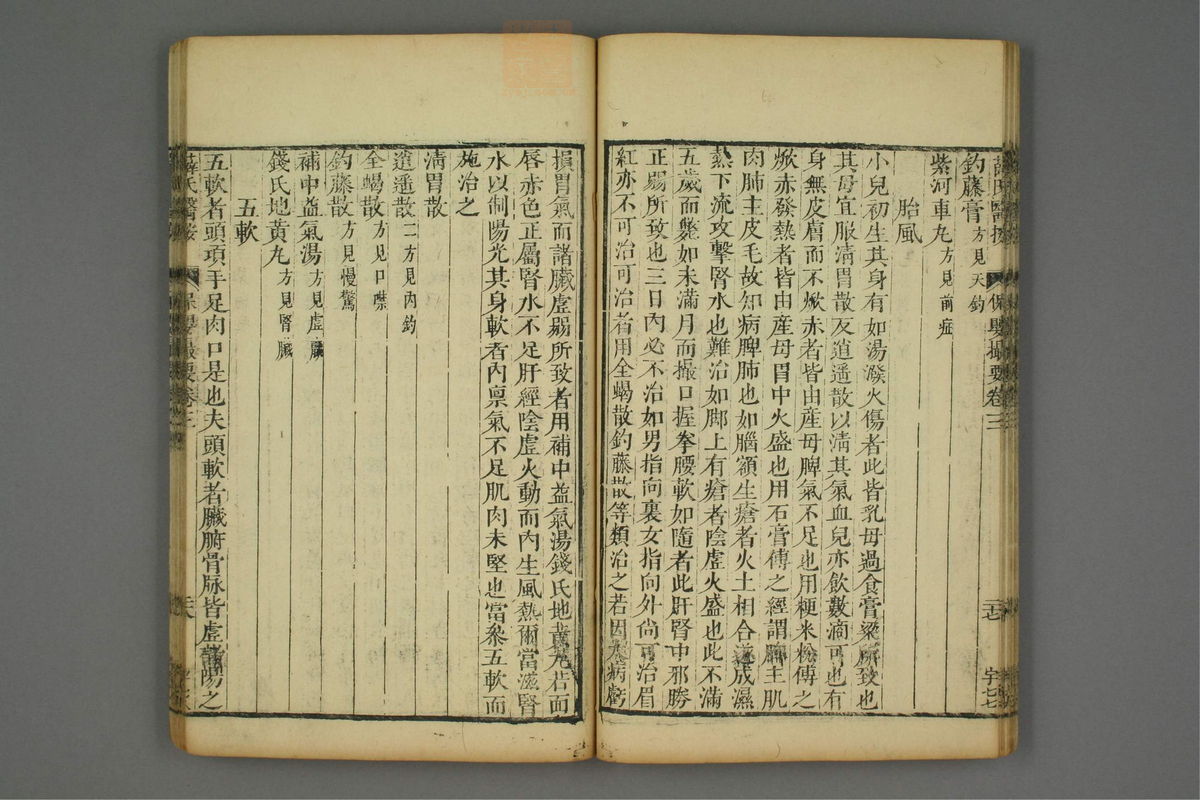 釣藤膏方見天釣
紫河車丸方見前症
胎風
小兒初生其身有如湯潑火傷者此皆乳母過食膏粱所致也
其母宜服清胃散及逍遥散以清其氣血兒亦飲數滴可也有
身無皮膚而不焮赤者皆由産母脾氣不足也用粳米粉傅之
焮赤發熱者皆由産母胃中火盛也用石膏傅之經謂脾主肌
肉肺主皮毛故知病脾肺也如腦額生瘡者火土相合遂成濕
熱下流攻擊腎水也難治如脚上有瘡者陰虛火盛也此不滿
五歲而斃如未滿月而撮口握拳腰軟如隨者此肝腎中邪勝
正弱所致也三日內必不治如男指向裏女指向外尙可治眉
紅亦不可治可治者用全蝎散釣藤散等類治之若因大病虧
損胃氣而諸臟虛弱所致者用補中益氣湯錢氏地黃丸若面
唇赤色正屬腎水不足肝經陰虛火動而內生風熱爾當滋腎
水以制陽光其身軟者內稟氣不足肌肉未堅也當參五軟而
施治之
清胃散
逍遥散二方見內釣
全蝎散方見口噤
釣藤散方見慢驚
補中益氣湯方見虛臟
錢氏地黃丸方見腎臟
五軟
五軟者頭項手足肉口是也夫頭軟者臟腑骨脉皆虛諸陽之
保嬰撮要卷三